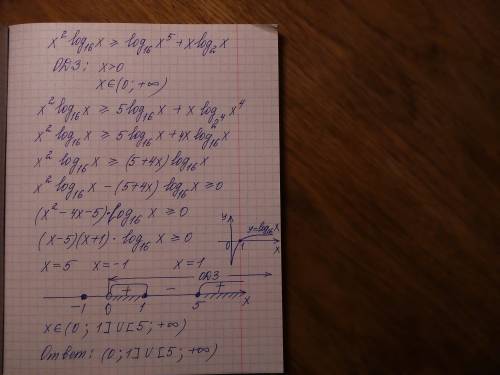 x² log₁₆ x ≥ log₁₆ x⁵ + x log₂ x
ОДЗ: x>0
x∈(0; +∞)
x² log₁₆ x ≥ 5 log₁₆ x + x log₂⁴ x⁴
x² log₁₆ x ≥ 5 log₁₆ x + 4x log₁₆ x
x² log₁₆ x ≥ (5+4x) log₁₆ x
x² log₁₆ x − (5+4x) log₁₆ x ≥ 0
(x² − 4x − 5) · log₁₆ x ≥ 0
(x−5)(x+1) · log₁₆ x ≥ 0
x=5 x=−1 x=1
y y=log₁₆ x
0 1 x
ОДЗ
+ − +
−1 0 1 5 x
x∈(0; 1] ∪ [5; +∞)
Ответ: (0; 1] ∪ [5; +∞)